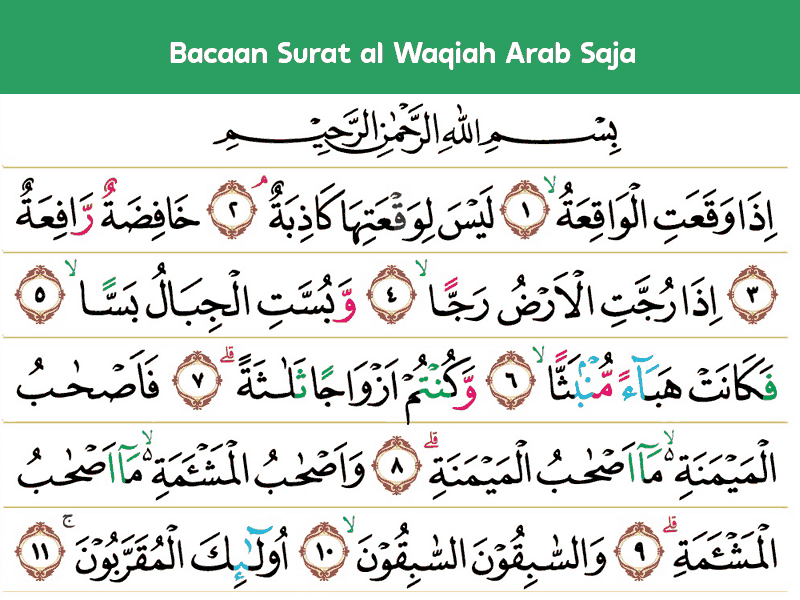 Bacaan Surat al Waqiah Arab Saja
بِسْمِ اللّٰهِ الرَّحْمٰنِ الرَّحِيْمِ
اِذَا وَقَعَتِ الْوَاقِعَةُۙ ١ لَيْسَ لِوَقْعَتِهَا كَاذِبَةٌ ۘ ٢ خَافِضَةٌ رَّافِعَةٌ
٣ اِذَا رُجَّتِ الْاَرْضُ رَجًّاۙ ٤ وَّبُسَّتِ الْجِبَالُ بَسًّاۙ ٥
فَكَانَتْ هَبَاۤءً مُّنْۢبَثًّاۙ ٦ وَّكُنْتُمْ اَزْوَاجًا ثَلٰثَةً ۗ ٧ فَاَصْحٰبُ
الْمَيْمَنَةِ ەۙ مَآ اَصْحٰبُ الْمَيْمَنَةِ ۗ ٨ وَاَصْحٰبُ الْمَشْـَٔمَةِ ەۙ مَآ اَصْحٰبُ
الْمَشْـَٔمَةِ ۗ ٩ وَالسّٰبِقُوْنَ السّٰبِقُوْنَۙ ١٠ اُولٰۤىِٕكَ الْمُقَرَّبُوْنَۚ ١١